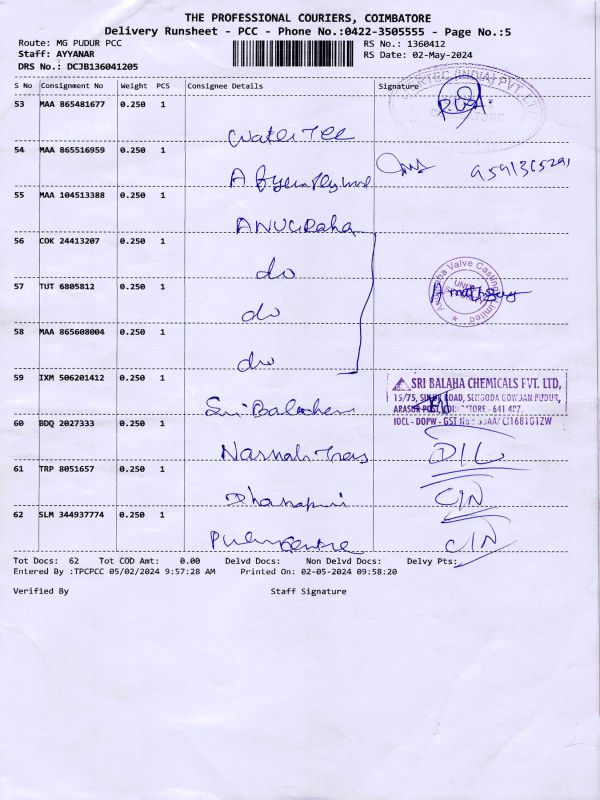 THE PROFESSIONAL COURIERS, COIMBATORE
Delivery Runsheet - PCC - Phone No.:0422-3505555 - Page No.:5
Route: MG PUDUR PCC RS No.: 1360412
Staff: AYYANAR RS Date: 02-May-2024
DRS No.: DCJB136041205
S No Consignment No Weight PCS Consignee Details Signature
53 MAA 865481677 0.250 1
Water Tec R.U.A.
54 MAA 865516959 0.250 1
9591365291
55 MAA 104513388 0.250 1
ANUGRaha
56 COK 24413207 0.250 1
do
57 TUT 6805812 0.250 1
do
58 MAA 865608004 0.250 1
do
59 IXM 506201412 0.250 1
SRI BALAHA CHEMICALS PVT. LTD,
15/75, ROAD, PUDUR,
ARASUR POST, COIMBATORE - 641 407.
IOCL - DOPW - GST No :
Sri Balachem
60 BDQ 2027333 0.250 1
DIL
61 TRP 8051657 0.250 1
Dhanapuri C/N
62 SLM 344937774 0.250 1
C/N
Tot Docs: 62 Tot COD Amt: 0.00 Delvd Docs: Non Delvd Docs: Delvy Pts:
Entered By :TPCPCC 05/02/2024 9:57:28 AM Printed On: 02-05-2024 09:58:20
Verified By Staff Signature